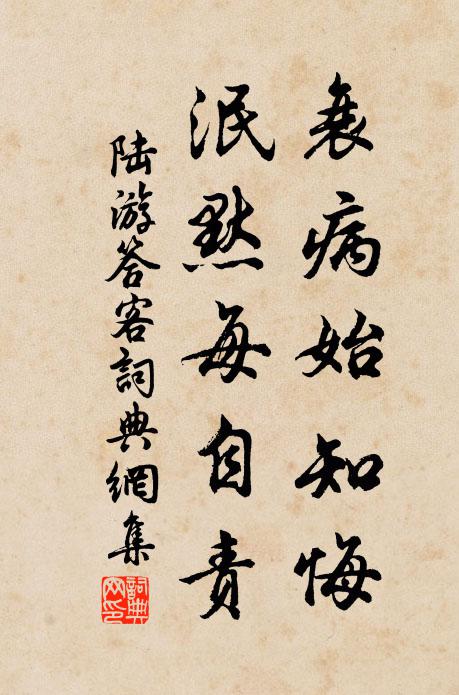 衰病始知悔
泯默每自责
陆游答客詞典網集
詞典
网印